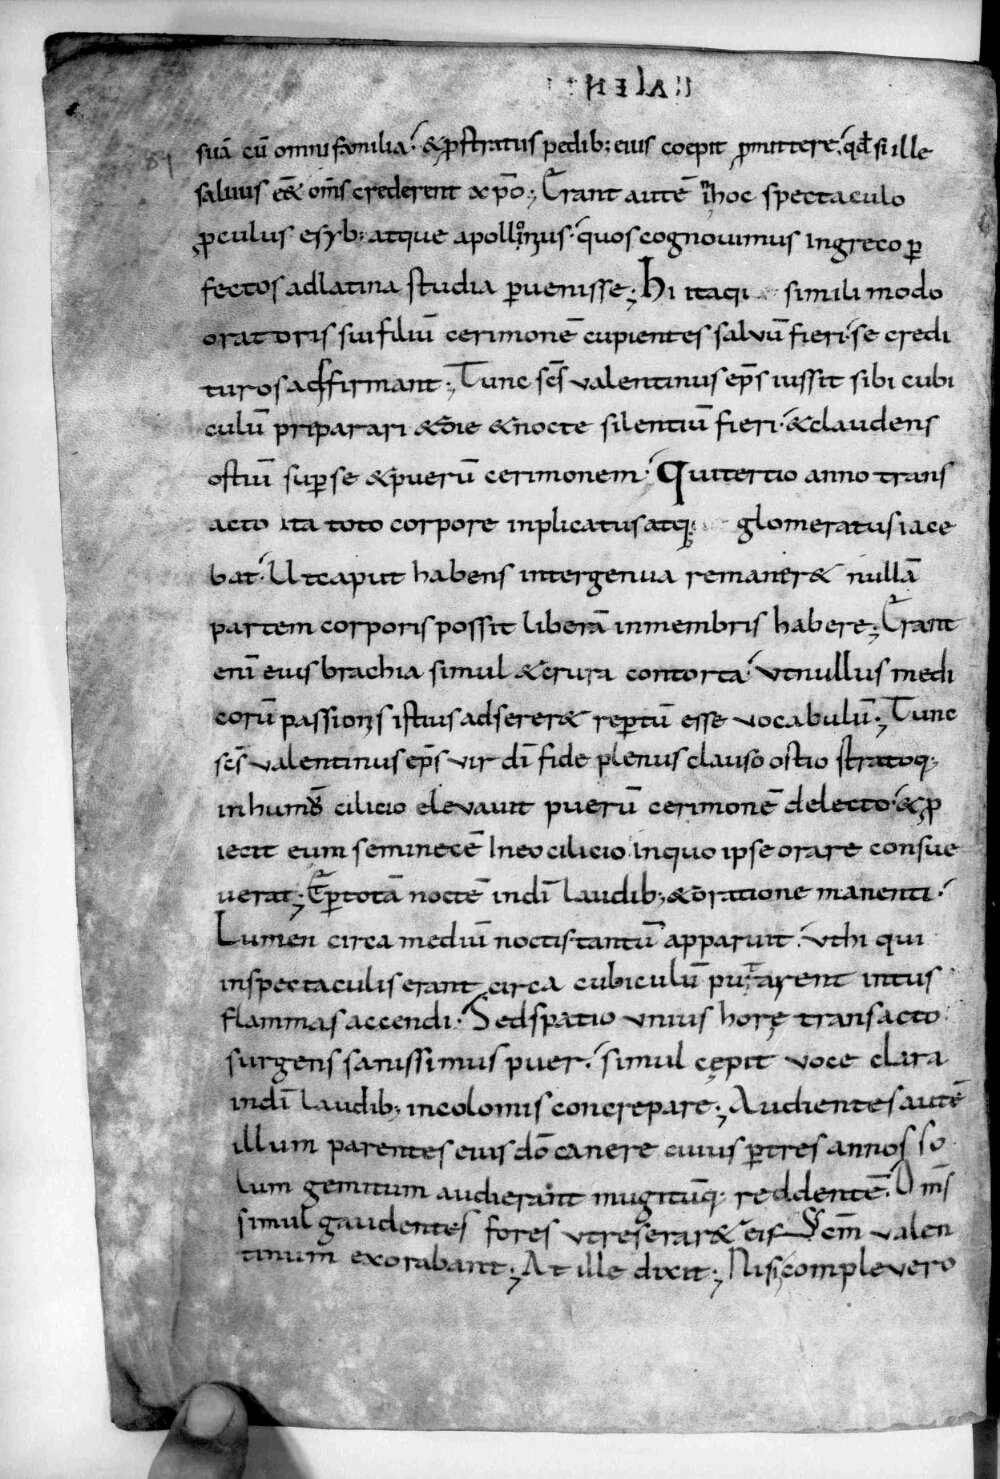 KALEN
suā cū omni familia; &ꝓstratus pedib; eius coepit ꝓmittere; qđ si ille
saluus eēt om̄s crederent xp̄o; Erant autē in hoc spectaculo
ꝓculus esyb; atque apollonius. quos cognouimus ingreco ꝑ
fectos adlatina studia ꝑuenisse; Hi itaq; simili modo
oratoris sui filiū cerimonē cupientes saluū fieri. se credi
turos adfirmant; Tunc sc̄s ualentinus ep̄s iussit sibi cubi
culū priparari &die &nocte silentiū fieri. &claudens
ostiū suꝑ se &puerū cerimonem. Qui tertio anno trans
acto ita toto corpore inplicatus atq; glomeratus iace
bat. Ut caput habens inter genua remaner& nullā
partem corporis possit liberā inmembris habere; Erant
eni eius brachia simul &crura contorta. ut nullus medi
corū passionis istius adserer& reꝑtū esse uocabulū; Tunc
sc̄s ualentinus ep̄s uir dī fide plenus clauso ostio stratoq;
in humo cilicio eleuauit puerū cerimonē delecto. &ꝓ
iecit eum seminecē Ineo cilicio inquo ipse orare consue
uerat; Et ꝑ totā noctē in dī laudib; &oratione manenti.
Lumen circa mediū noctis tantū apparuit. ut hi qui
inspectaculis erant circa cubiculū putarent intus
flammas accendi. Sed spatio unius horę transacto
surgens sanissimus puer. simul cępit uoce clara
in dī laudib; incolomis concrepare; Audientes autē
illum parentes eius dō canere cuius ꝑ tres annos so
lum gemitum audierant mugitūq; reddentē. Om̄s
simul gaudentes fores ut reserar& eis sc̄m ualen
tinum exorabant; At ille dixit; Nisi compleuero